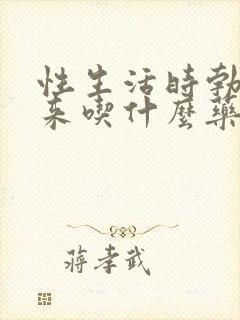 性生活時勃
来喫什麼藥
蔣孝武